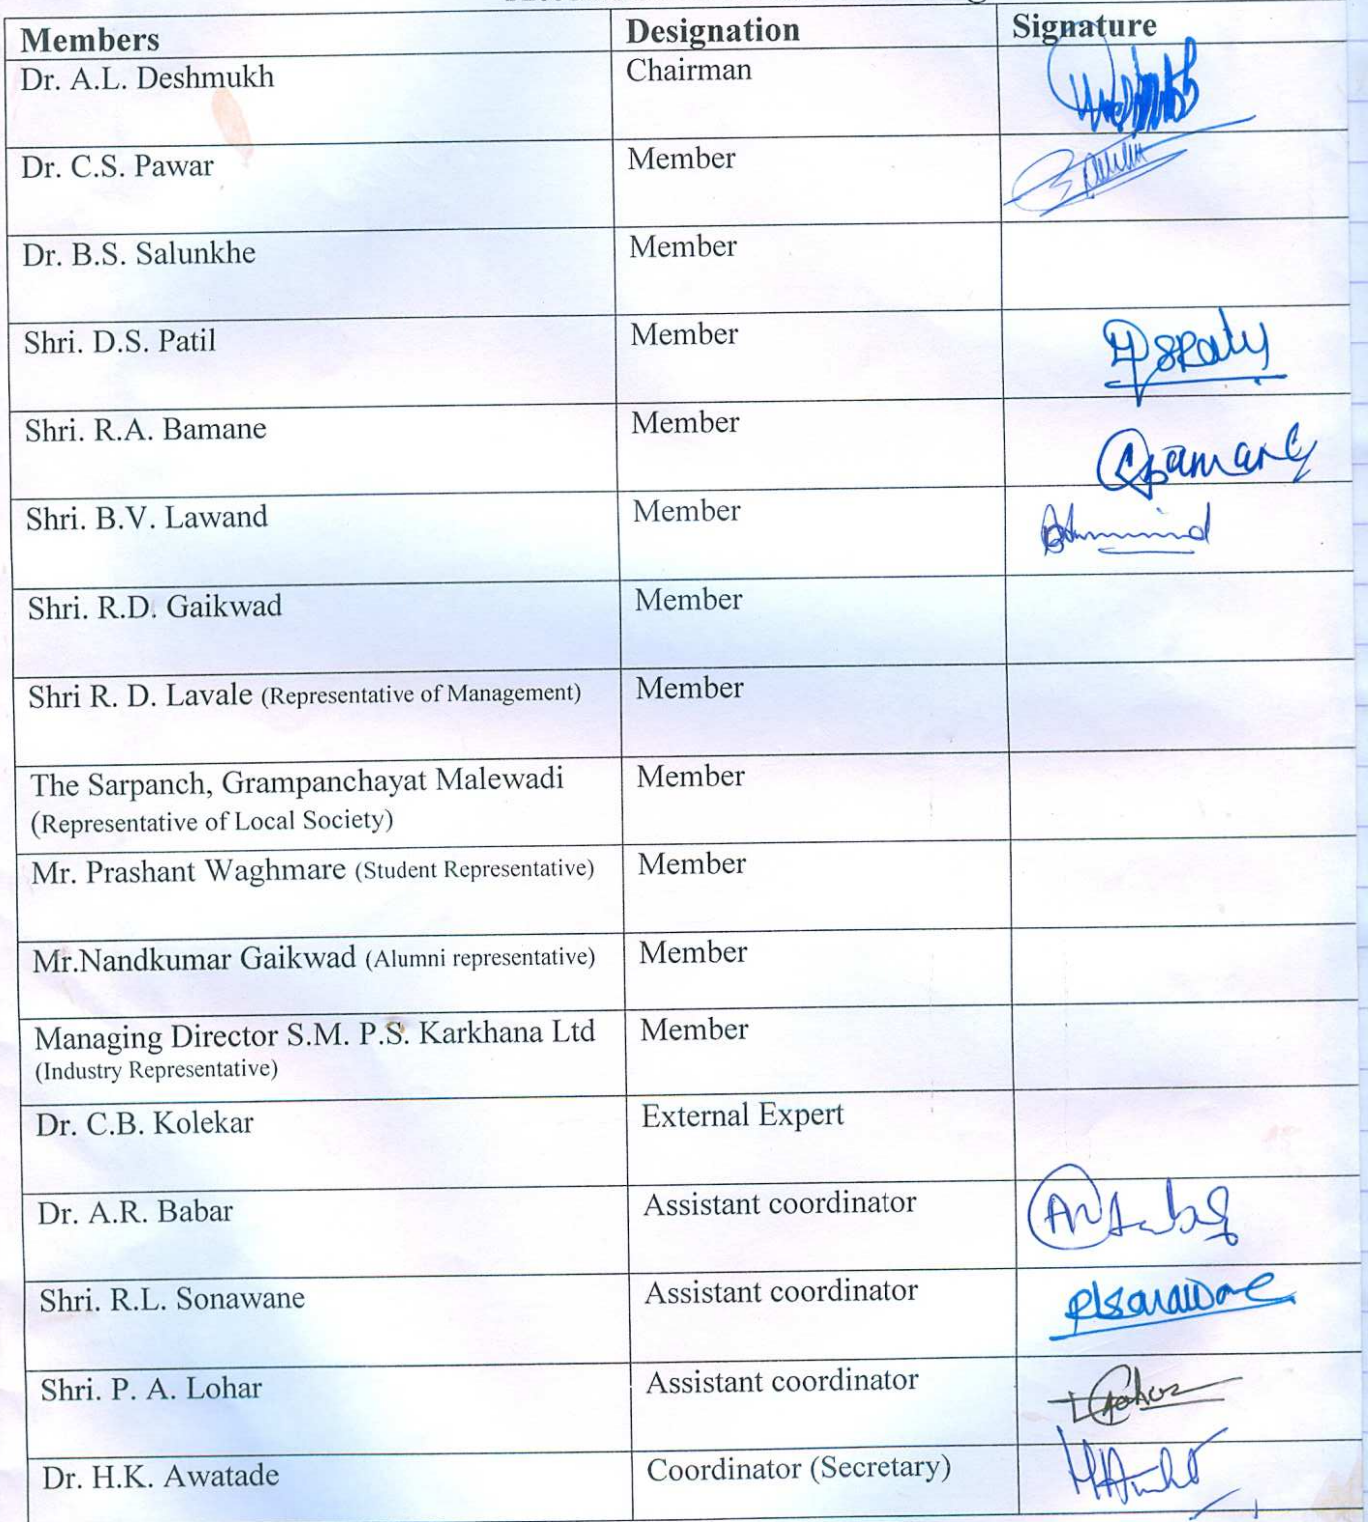 Members Designation Signature
Dr. A.L. Deshmukh Chairman
Dr. C.S. Pawar Member
Dr. B.S. Salunkhe Member
Shri. D.S. Patil Member
Shri. R.A. Bamane Member
Shri. B.V. Lawand Member
Shri. R.D. Gaikwad Member
Shri R. D. Lavale (Representative of Management) Member
The Sarpanch, Grampanchayat Malewadi Member
(Representative of Local Society)
Mr. Prashant Waghmare (Student Representative) Member
Mr.Nandkumar Gaikwad (Alumni representative) Member
Managing Director S.M. P.S. Karkhana Ltd Member
(Industry Representative)
Dr. C.B. Kolekar External Expert
Dr. A.R. Babar Assistant coordinator
Shri. R.L. Sonawane Assistant coordinator
Shri. P. A. Lohar Assistant coordinator
Dr. H.K. Awatade Coordinator (Secretary)